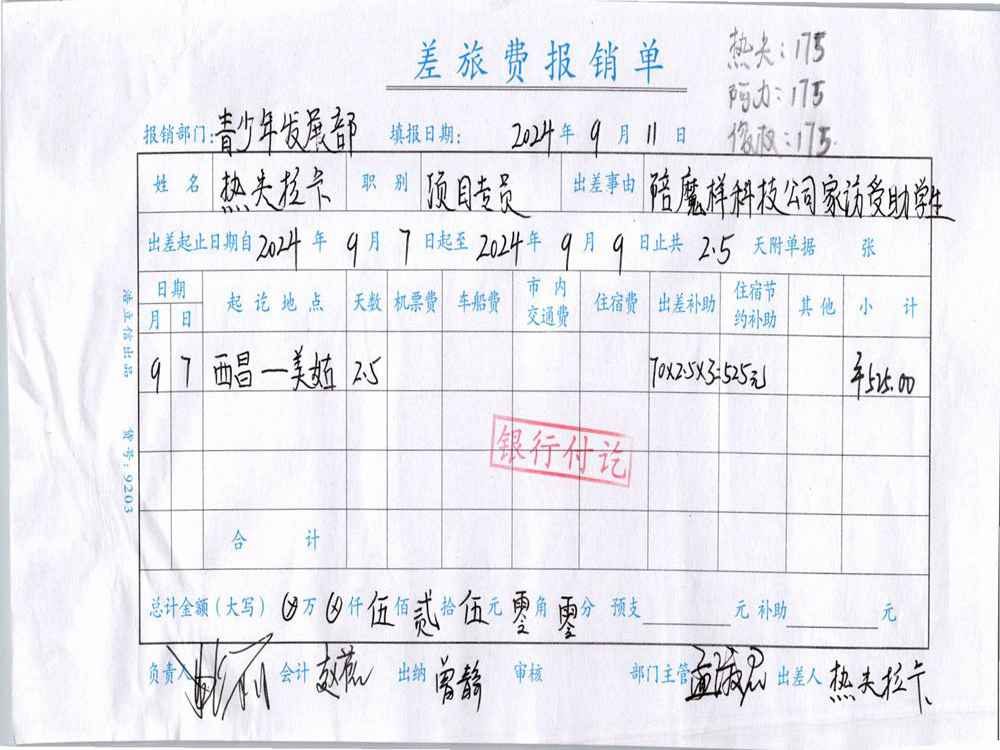 差旅费报销单
热夫：175
阿力：175
：175
报销部门：青少年发展部 填报日期： 2024 年 9 月 11 日
姓 名 热夫拉卡 职 别 项目专员 出差事由 陪魔样科技公司家访受助学生
出差起止日期自 2024 年 9 月 7 日起至 2024 年 9 月 9 日止共 2.5 天附单据 张
日期 起 讫 地 点 天数 机票费 车船费 市 内 交通费 住宿费 出差补助 住宿节 约补助 其 他 小 计
月 日
9 7 西昌—美姑 2.5 70×2.5×3=525元 ¥525.00
银行付讫
合 计
总计金额（大写） ⊗万 ⊗仟 伍佰 贰拾 伍元 零角 零分 预支 元 补助 元
负责人 会计 出纳 曾静 审核 部门主管 出差人 热夫拉卡
浩立信出品 货号：9203